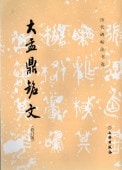 历代碑帖法书选
大盂鼎銘文
(修订版)
文物出版社